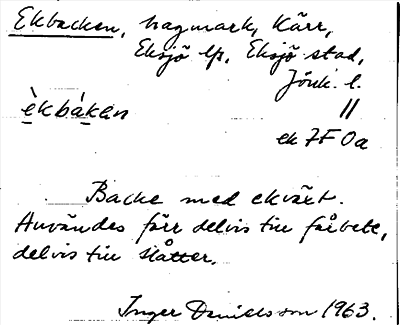 Ekbacken, hagmark, Kärr,
Eksjö lfs, Eksjö stad,
Jönk. l.
èkbákèn
"
ek 7F 0a
Backe med ekväxt.
Användes förr delvis till fårbete,
delvis till slåtter.
Inger Danielsson 1963.